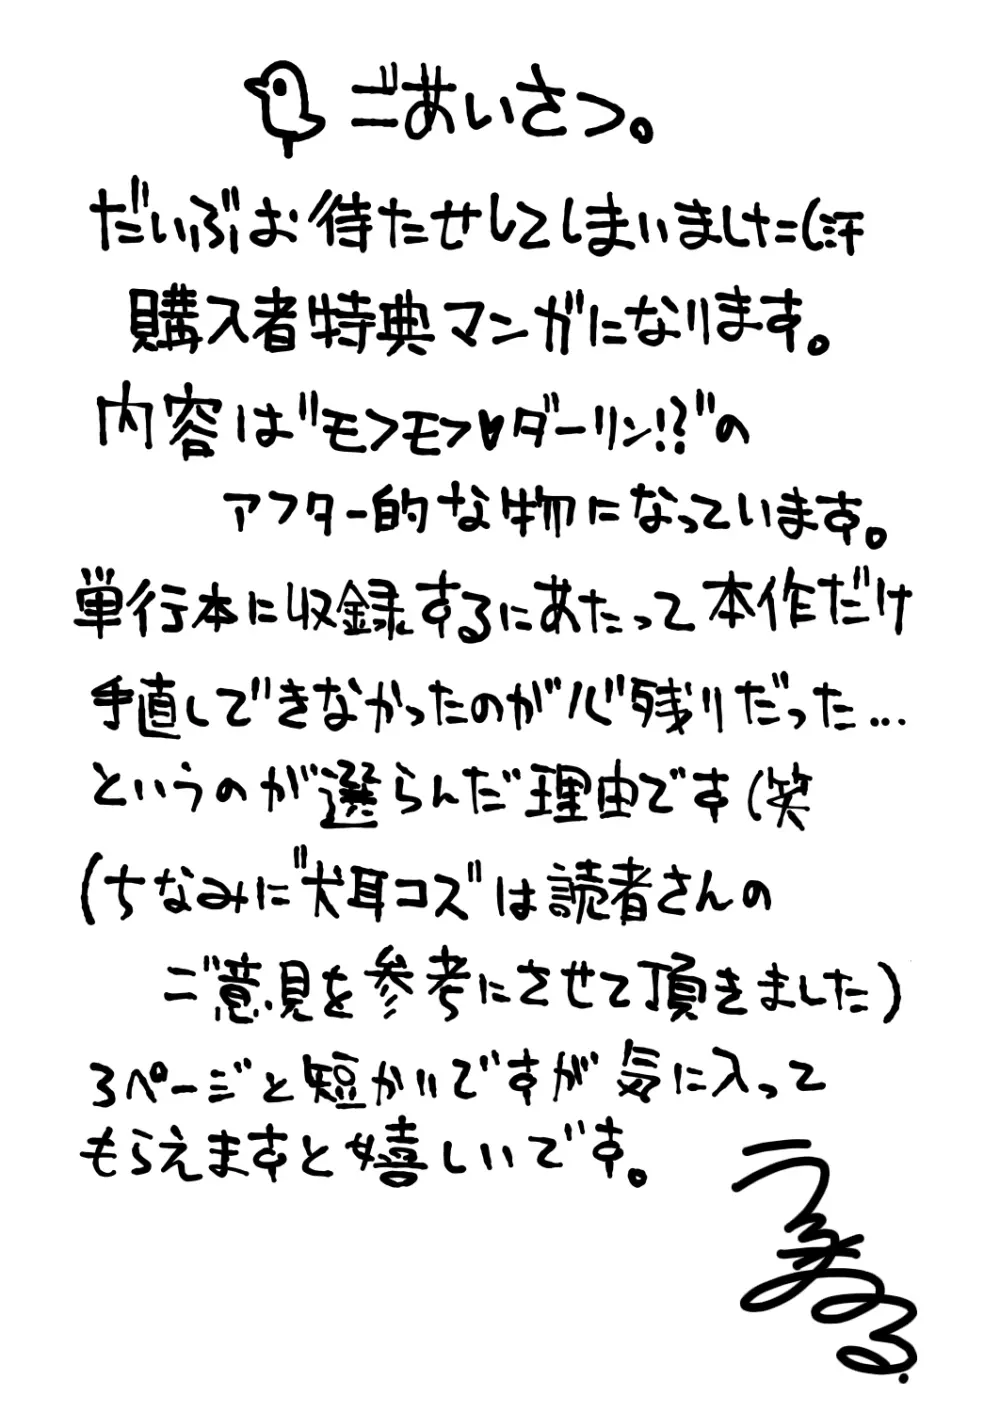 ごあいさつ。
だいぶお待たせしてしまいました(汗
購入者特典マンガになります。
内容は"モフモフ♥ダーリン!?"の
アフター的な物になっています。
単行本に収録するにあたって本作だけ
手直しできなかったのが心残りだった...
というのが選らんだ理由です(笑
(ちなみに"犬耳コス"は読者さんの
ご意見を参考にさせて頂きました)
3ページと短かいですが気に入って
もらえますと嬉しいです。